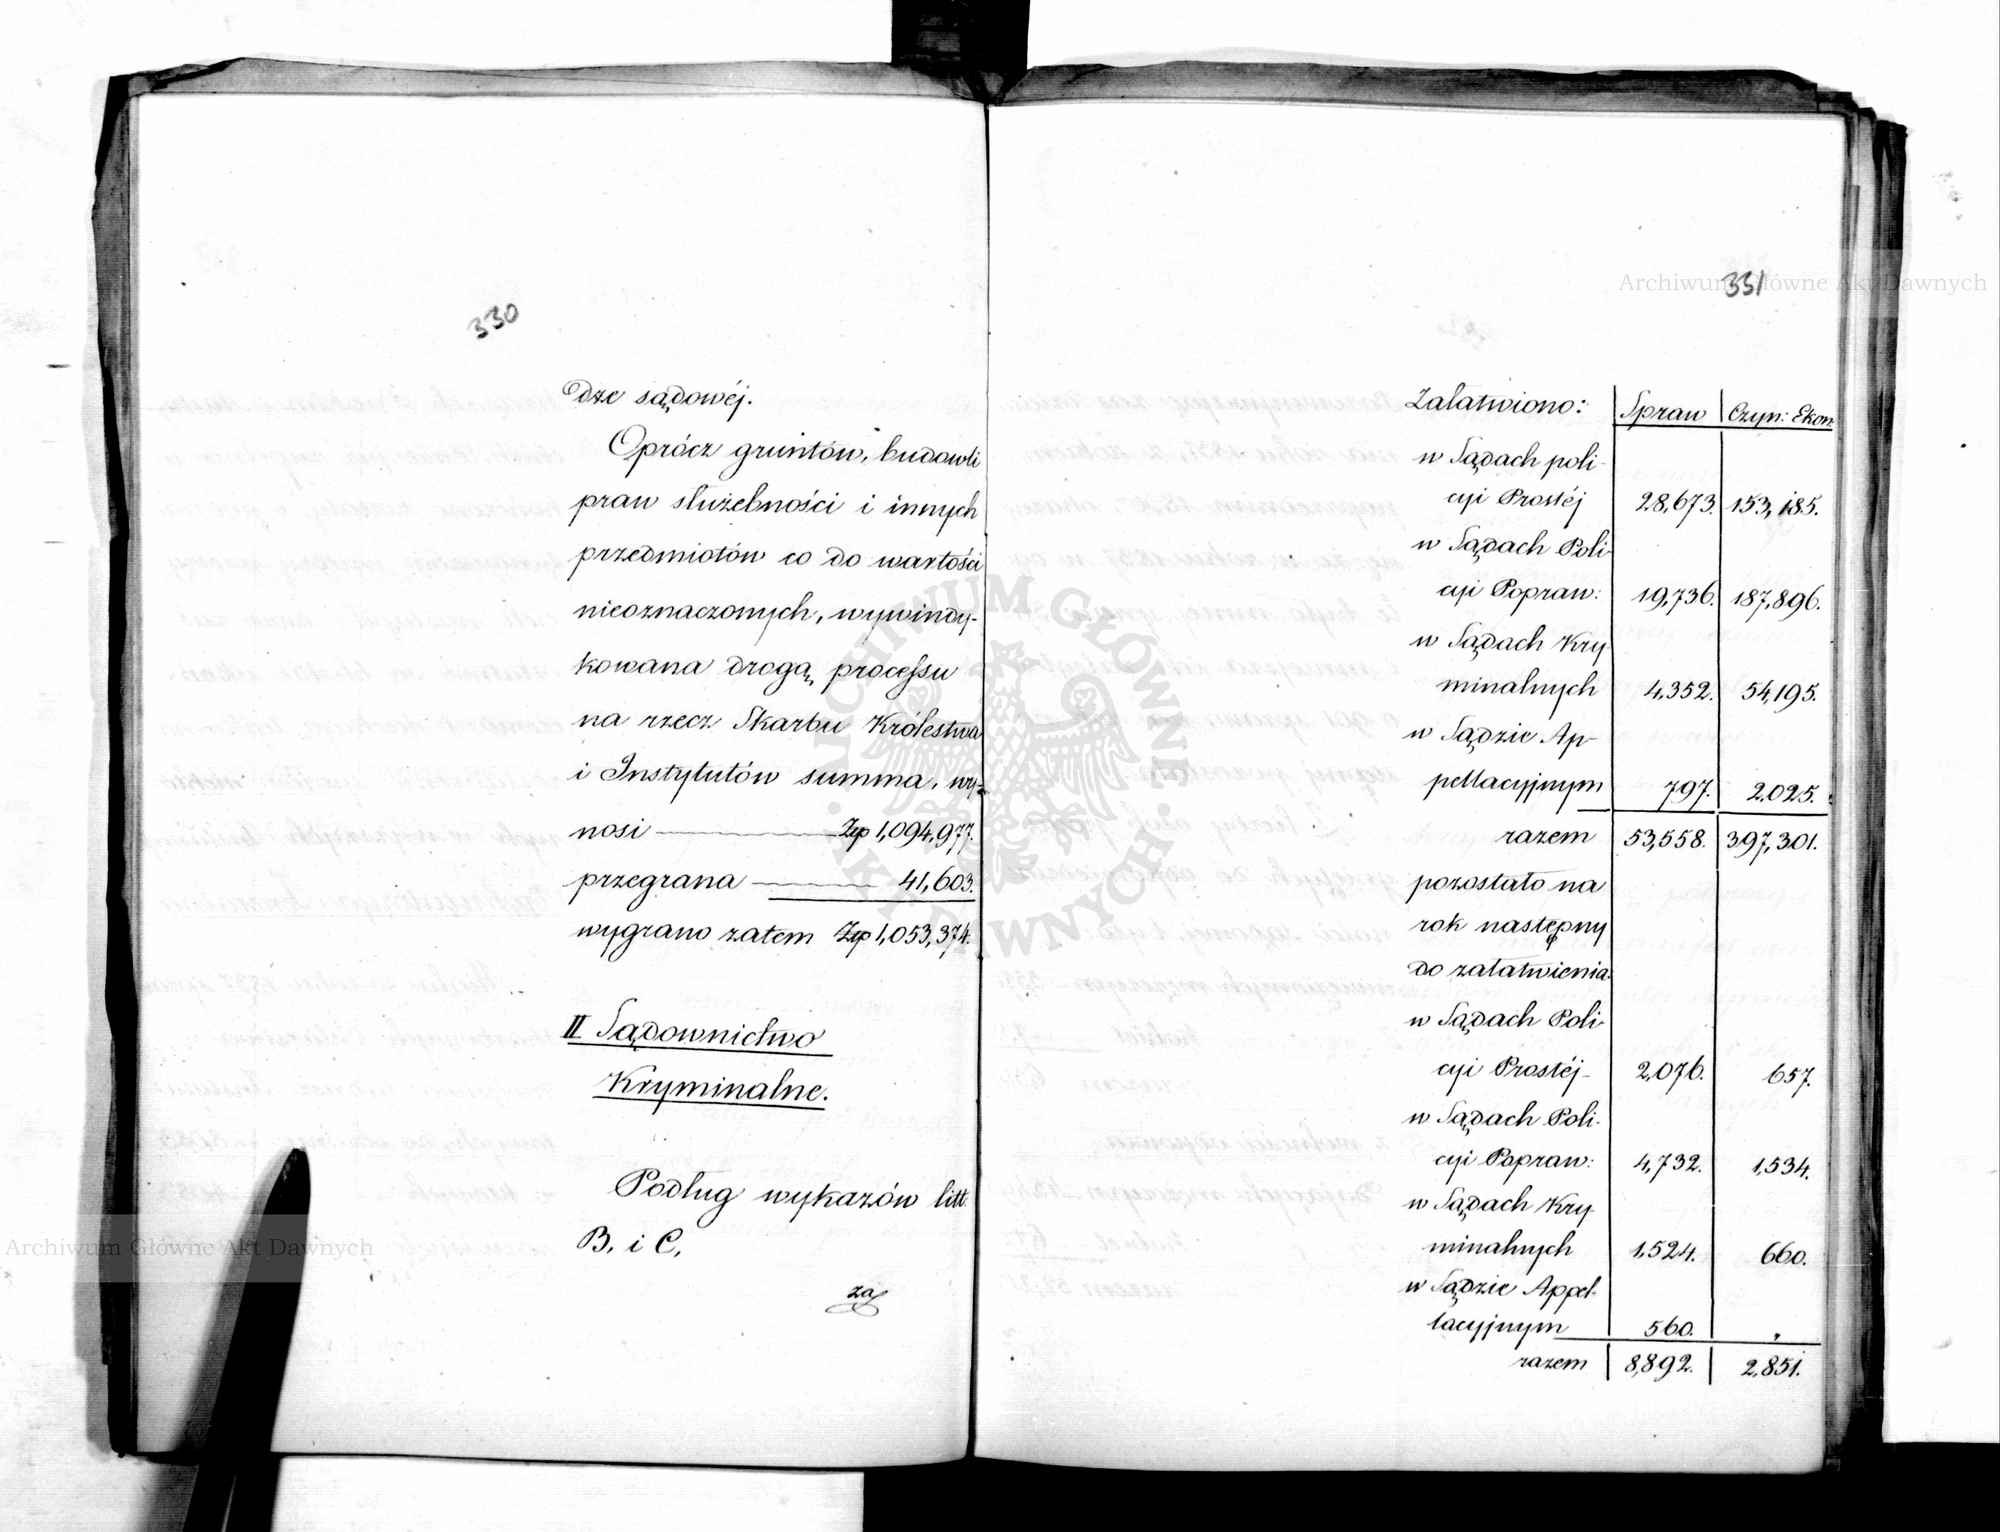 330
dze sądowéj.
Oprócz gruntów, budowli
praw służebności i innych
przedmiotów co do wartości
nieoznaczonych, wywindy-
kowana drogą processu
na rzecz Skarbu Królestwa
i Instytutów summa, wy-
nosi Złp 1,094,977.
przegrana 41,603.
wygrano zatem Złp 1,053,374.
II Sądownictwo
Kryminalne.
Podług wykazów litt.
B. i C.
za
331
Załatwiono: Spraw Czyn: Ekon:
w Sądach poli-
cyi Prostéj 28,673. 153,185.
w Sądach Poli-
cyi Popraw: 19,736. 187,896.
w Sądach Kry-
minalnych 4,352. 54,195.
w Sądzie Ap-
pellacyjnym 797. 2,025.
razem 53,558. 397,301.
pozostało na
rok następny
do załatwienia:
w Sądach Poli-
cyi Prostéj 2,076. 657.
w Sądach Poli-
cyi Popraw: 4,732. 1,534.
w Sądach Kry-
minalnych 1,524. 660.
w Sądzie Appel-
lacyjnym 560. "
razem 8,892. 2,851.
Archiwum Główne Akt Dawnych
Archiwum Główne Akt Dawnych
ARCHIWUM GŁÓWNE · AKT DAWNYCH ·